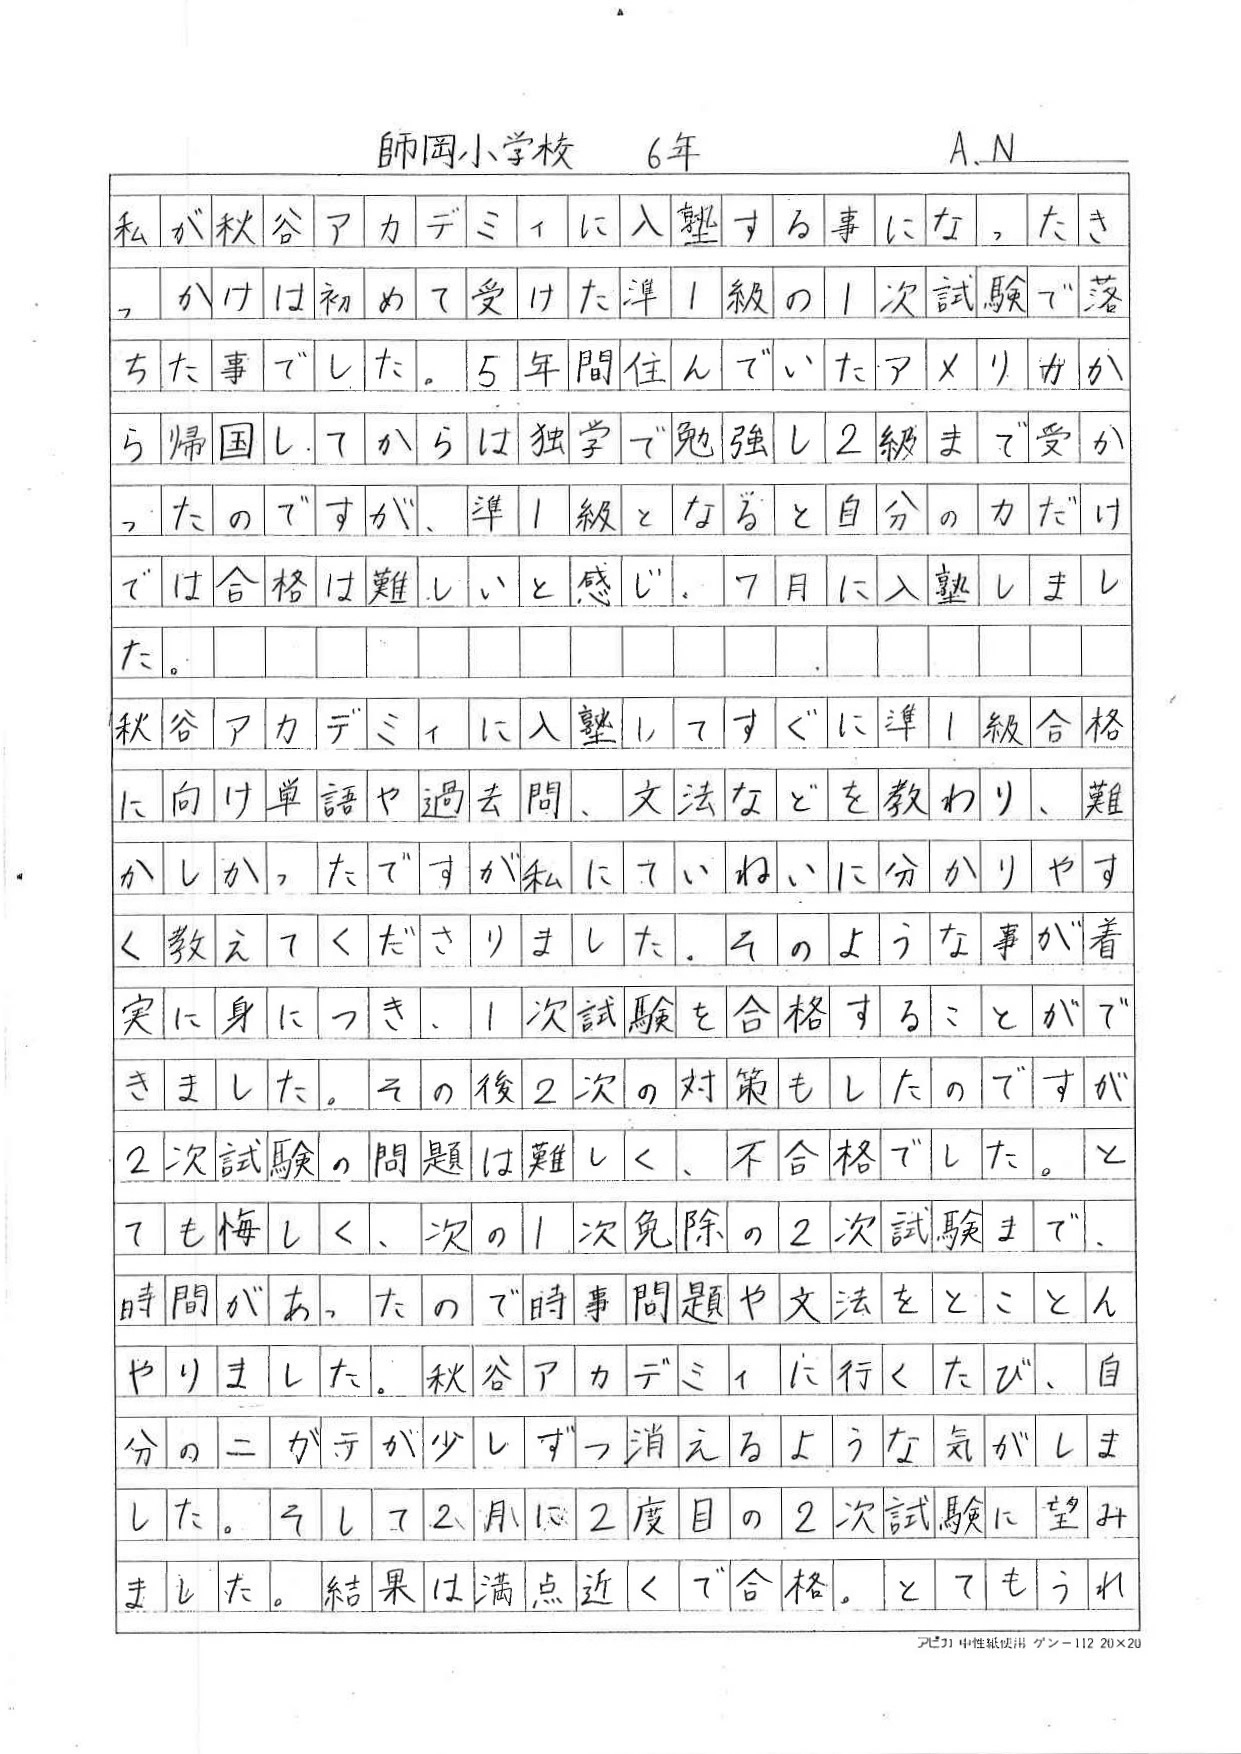 師岡小学校 6年 A.N
私が秋谷アカデミィに入塾する事になったき
っかけは初めて受けた準1級の1次試験で落
ちた事でした。5年間住んでいたアメリカか
ら帰国してからは独学で勉強し2級まで受か
ったのですが、準1級となると自分の力だけ
では合格は難しいと感じ、7月に入塾しまし
た。
秋谷アカデミィに入塾してすぐに準1級合格
に向け単語や過去問、文法などを教わり、難
かしかったですが私にていねいに分かりやす
く教えてくださりました。そのような事が着
実に身につき、1次試験を合格することがで
きました。その後2次の対策もしたのですが
2次試験の問題は難しく、不合格でした。と
ても悔しく、次の1次免除の2次試験まで、
時間があったので時事問題や文法をとことん
やりました。秋谷アカデミィに行くたび、自
分のニガテが少しずつ消えるような気がしま
した。そして2月に2度目の2次試験に望み
ました。結果は満点近くで合格。とてもうれ
アピカ 中性紙使用 ゲンー112 20×20